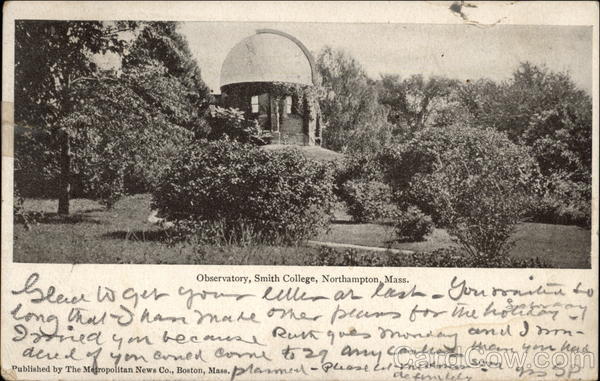 Observatory, Smith College, Northampton, Mass.
Glad to get your letter at last - You waited so
long that I have made other plans for the holiday -
I missed you because Ruth goes Monday and I won-
dered if you could come to any earlier than you had
planned - Please let me know definitely
Published by The Metropolitan News Co., Boston, Mass.
CardCow.com